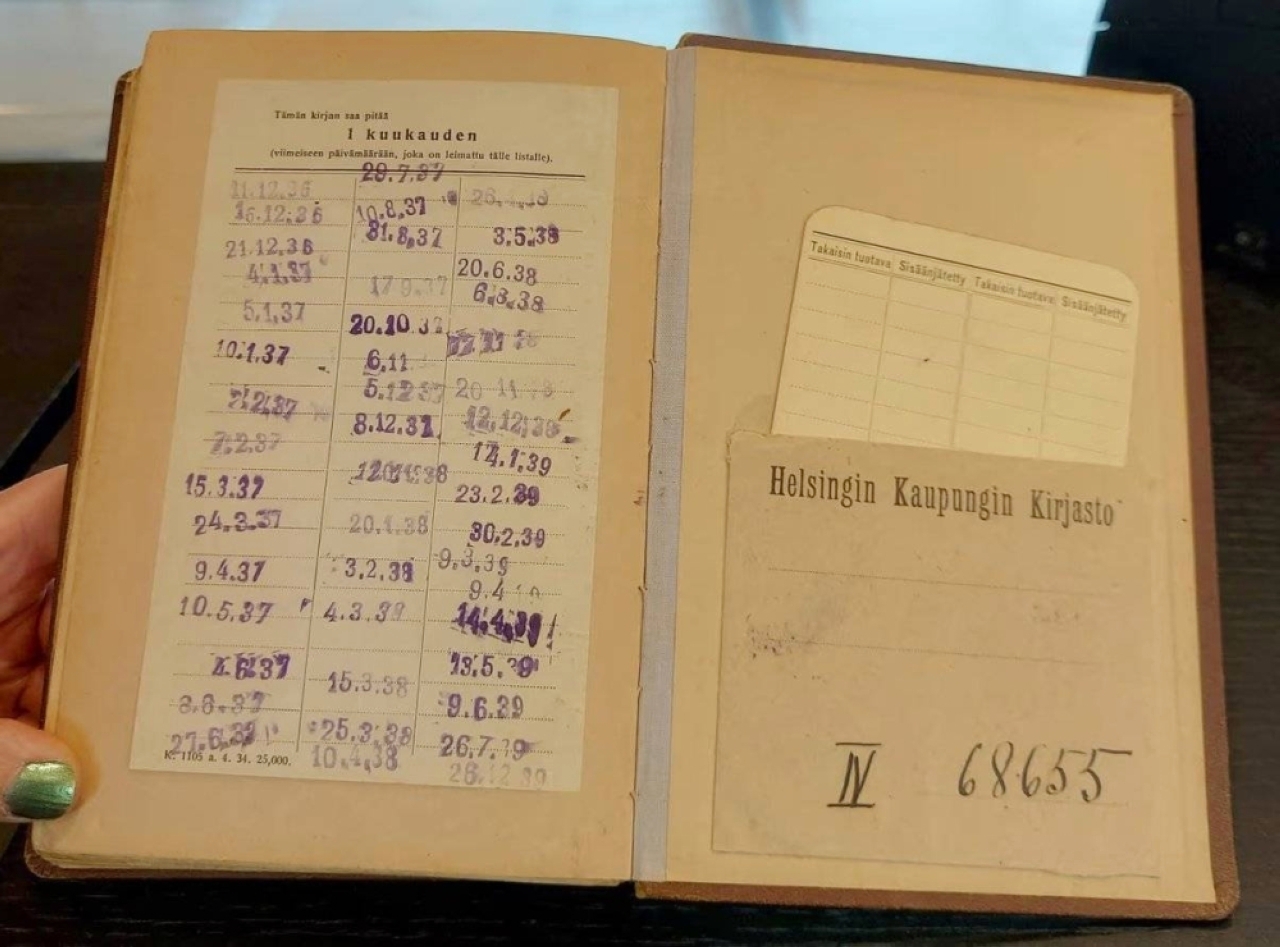 Tämän kirjan saa pitää
1 kuukauden
(viimeiseen päivämäärään, joka on leimattu tälle listalle).
11.12.36
16.12.36
21.12.36
4.1.37
5.1.37
10.1.37
7.2.37
7.2.37
15.3.37
24.3.37
9.4.37
10.5.37
27.6.37
K. 1105 a. 4. 34. 25,000.
10.8.37
31.8.37
17 9.37
20.10.37
6.11
5.12 37
8.12.37
20.1.38
3.2.38
4.3.38
15.3.38
25.3.38
10.4.38
3.5.38
20.6.38
20 11
12.12.38
23.2.39
30.2.39
9.3.39
9.4
14.4.39
13.5.39
9.6.39
26.7.39
Takaisin tuotava Sisäänjätetty Takaisin tuotava Sisäänjätetty
Helsingin Kaupungin Kirjasto
IV 68655